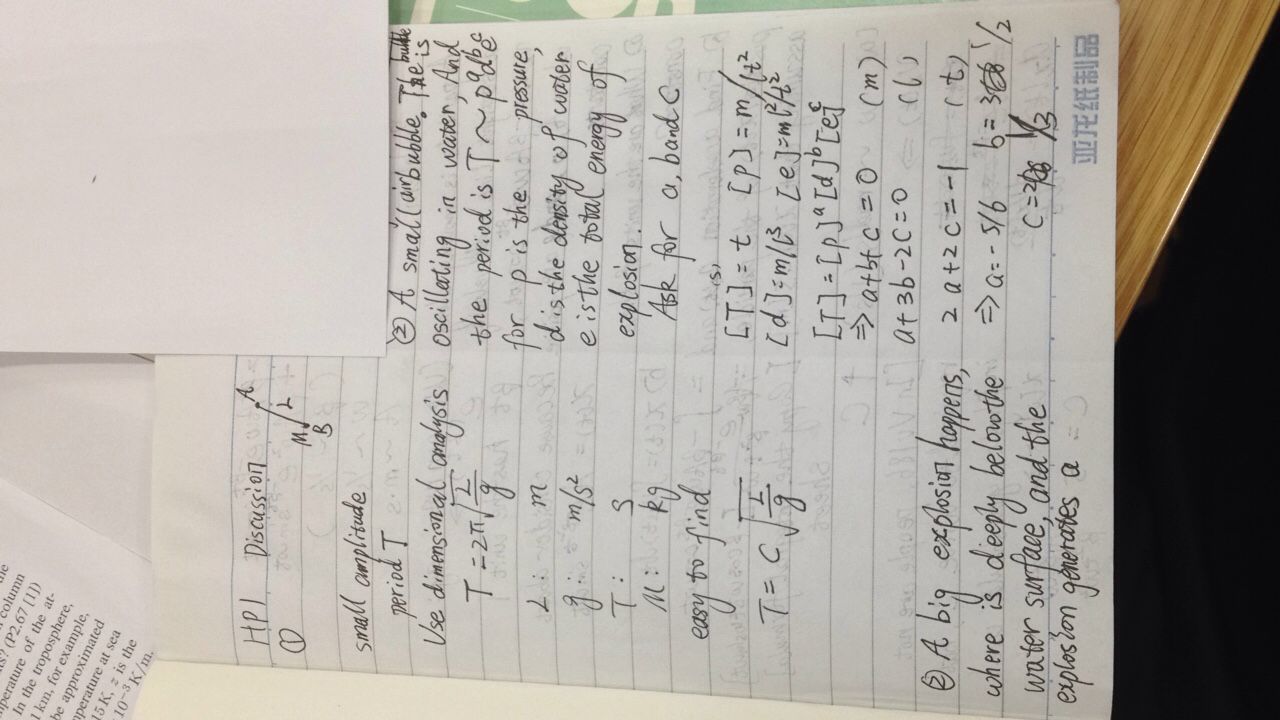 column
? (P2.67 [1])
mperature of the at-
In the troposphere,
1 km, for example,
be approximated
mperature at sea
15 K, z is the
10⁻³ K/m.
HP1 Discussion
①
A
L
M
B
small amplitude
period T
Use dimensional analysis
T = 2π√(L/g)
L : m
g : m/s²
T : s
M : kg
easy to find
T = C√(L/g)
② A big explosion happens,
where is dieeply below the
water surface, and the
explosion generates a
② A small air bubble. The bubble is
oscillating in water, And
the period is T ~ pᵃdᵇeᶜ
for p is the pressure,
d is the density of water
e is the total energy of
explosion.
Ask for a, b and C
(s)
[T] = t [p] = m/lt²
[d] = m/l³ [e] = ml²/t²
[T] = [p]ᵃ [d]ᵇ [e]ᶜ
⇒ a+b+c = 0 (m)
a+3b-2c=0 (l)
2a+2c=-1 (t)
⇒ a=-5/6 b= 1/2
c= 1/3
亚龙纸制品